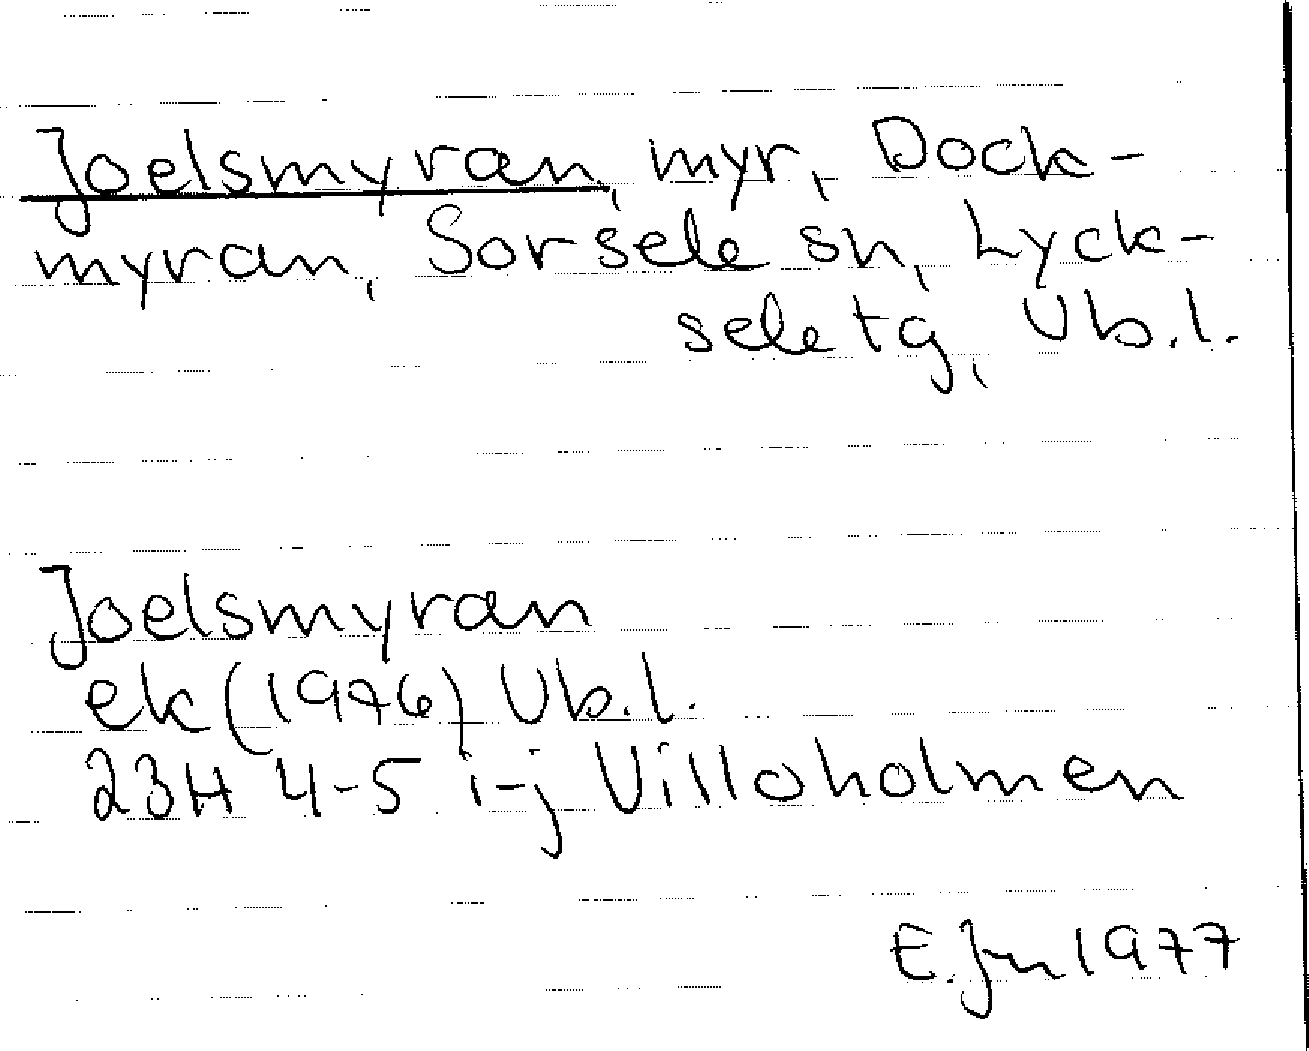 Joelsmyran, myr, Dock-
myran, Sorsele sn, Lyck-
sele tg, Vb.l.
Joelsmyran
ek (1976) Vb.l.
23H 4-5 i-j Villoholmen
E. Jn 1977